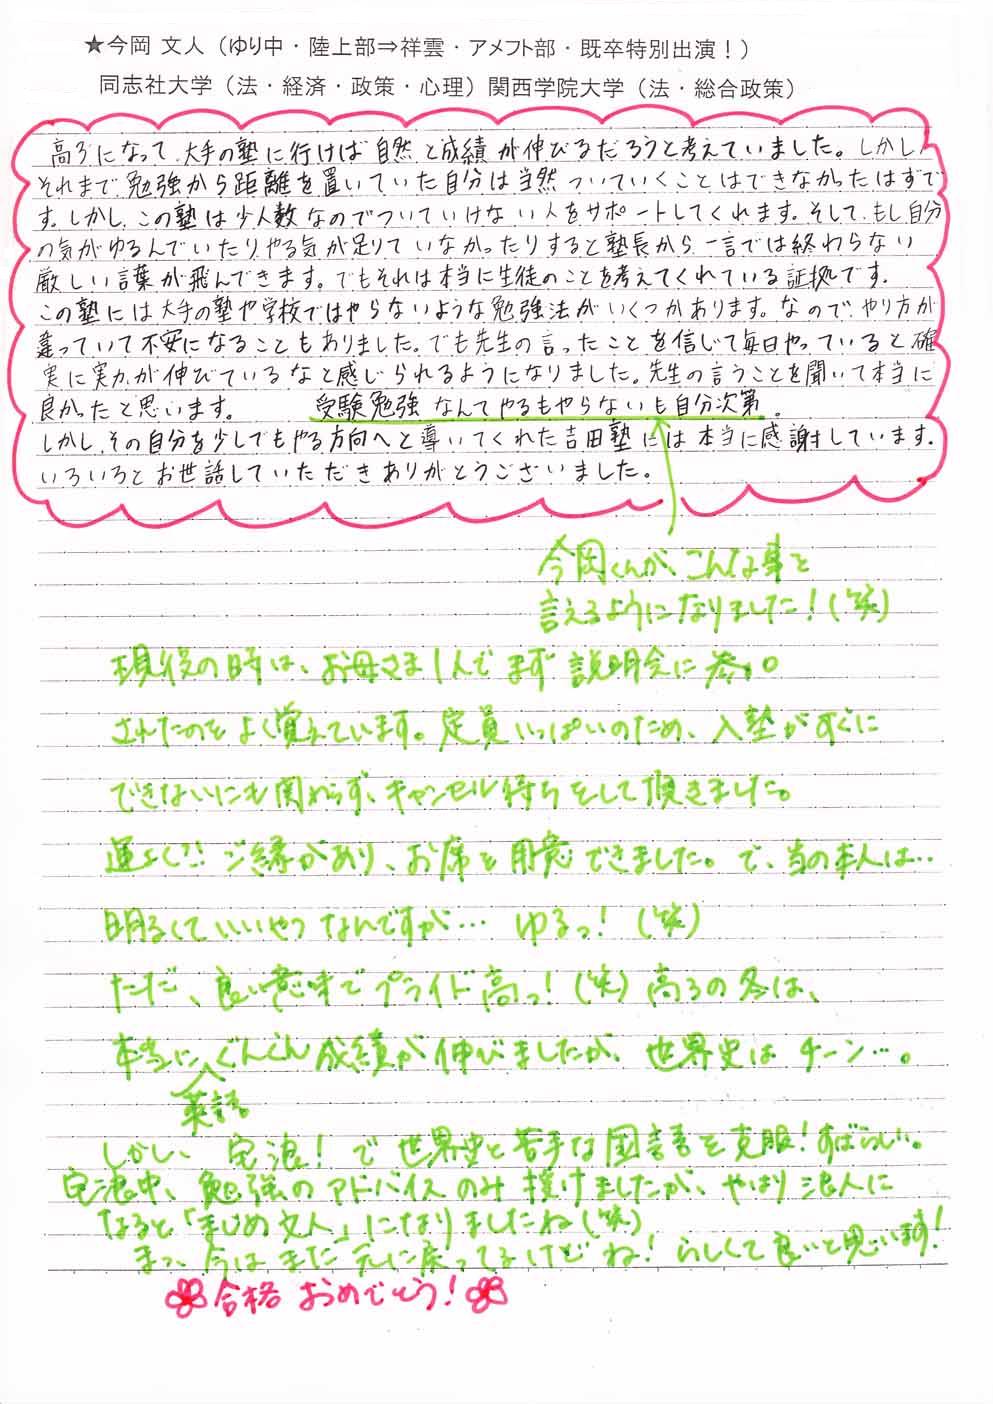 ★今岡 文人（ゆり中・陸上部⇒祥雲・アメフト部・既卒特別出演！）
同志社大学（法・経済・政策・心理）関西学院大学（法・総合政策）
高3になって、大手の塾に行けば自然と成績が伸びるだろうと考えていました。しかし
それまで勉強から距離を置いていた自分は当然ついていくことはできなかったはずで
す。しかし、この塾は少人数なのでついていけない人をサポートしてくれます。そして、もし自分
の気がゆるんでいたりやる気が足りていなかったりすると塾長から一言では終わらない
厳しい言葉が飛んできます。でもそれは本当に生徒のことを考えてくれている証拠です。
この塾には大手の塾や学校ではやらないような勉強法がいくつかあります。なので、やり方が
違っていて不安になることもありました。でも先生の言ったことを信じて毎日やっていると確
実に実力が伸びているなと感じられるようになりました。先生の言うことを聞いて本当に
良かったと思います。 受験勉強なんてやるもやらないも自分次第。
しかし、その自分を少しでもやる方向へと導いてくれた吉田塾には本当に感謝しています。
いろいろとお世話していただきありがとうございました。
今岡くんが、こんな事を
言えるようになりました！(笑)
現役の時は、お母さま1人でまず説明会に参加
されたのをよく覚えています。定員いっぱいのため、入塾がすぐに
できないにも関わらず、キャンセル待ちをして頂きました。
運よく!! ご縁があり、お席を用意できました。で、当の本人は‥
明るくていいやつなんですが… ゆるっ！(笑)
ただ、良い意味でプライド高っ！(笑) 高3の冬は、
本当にぐんぐん成績が伸びましたが、世界史はチーン…。
英語
しかし、宅浪！で世界史と苦手な国語を克服！すばらしい。
宅浪中、勉強のアドバイスのみ授けましたが、やはり浪人に
なると「まじめ文人」になりましたね(笑)
まっ、今はまた元に戻ってるけどね！らしくて良いと思います！
合格おめでとう！